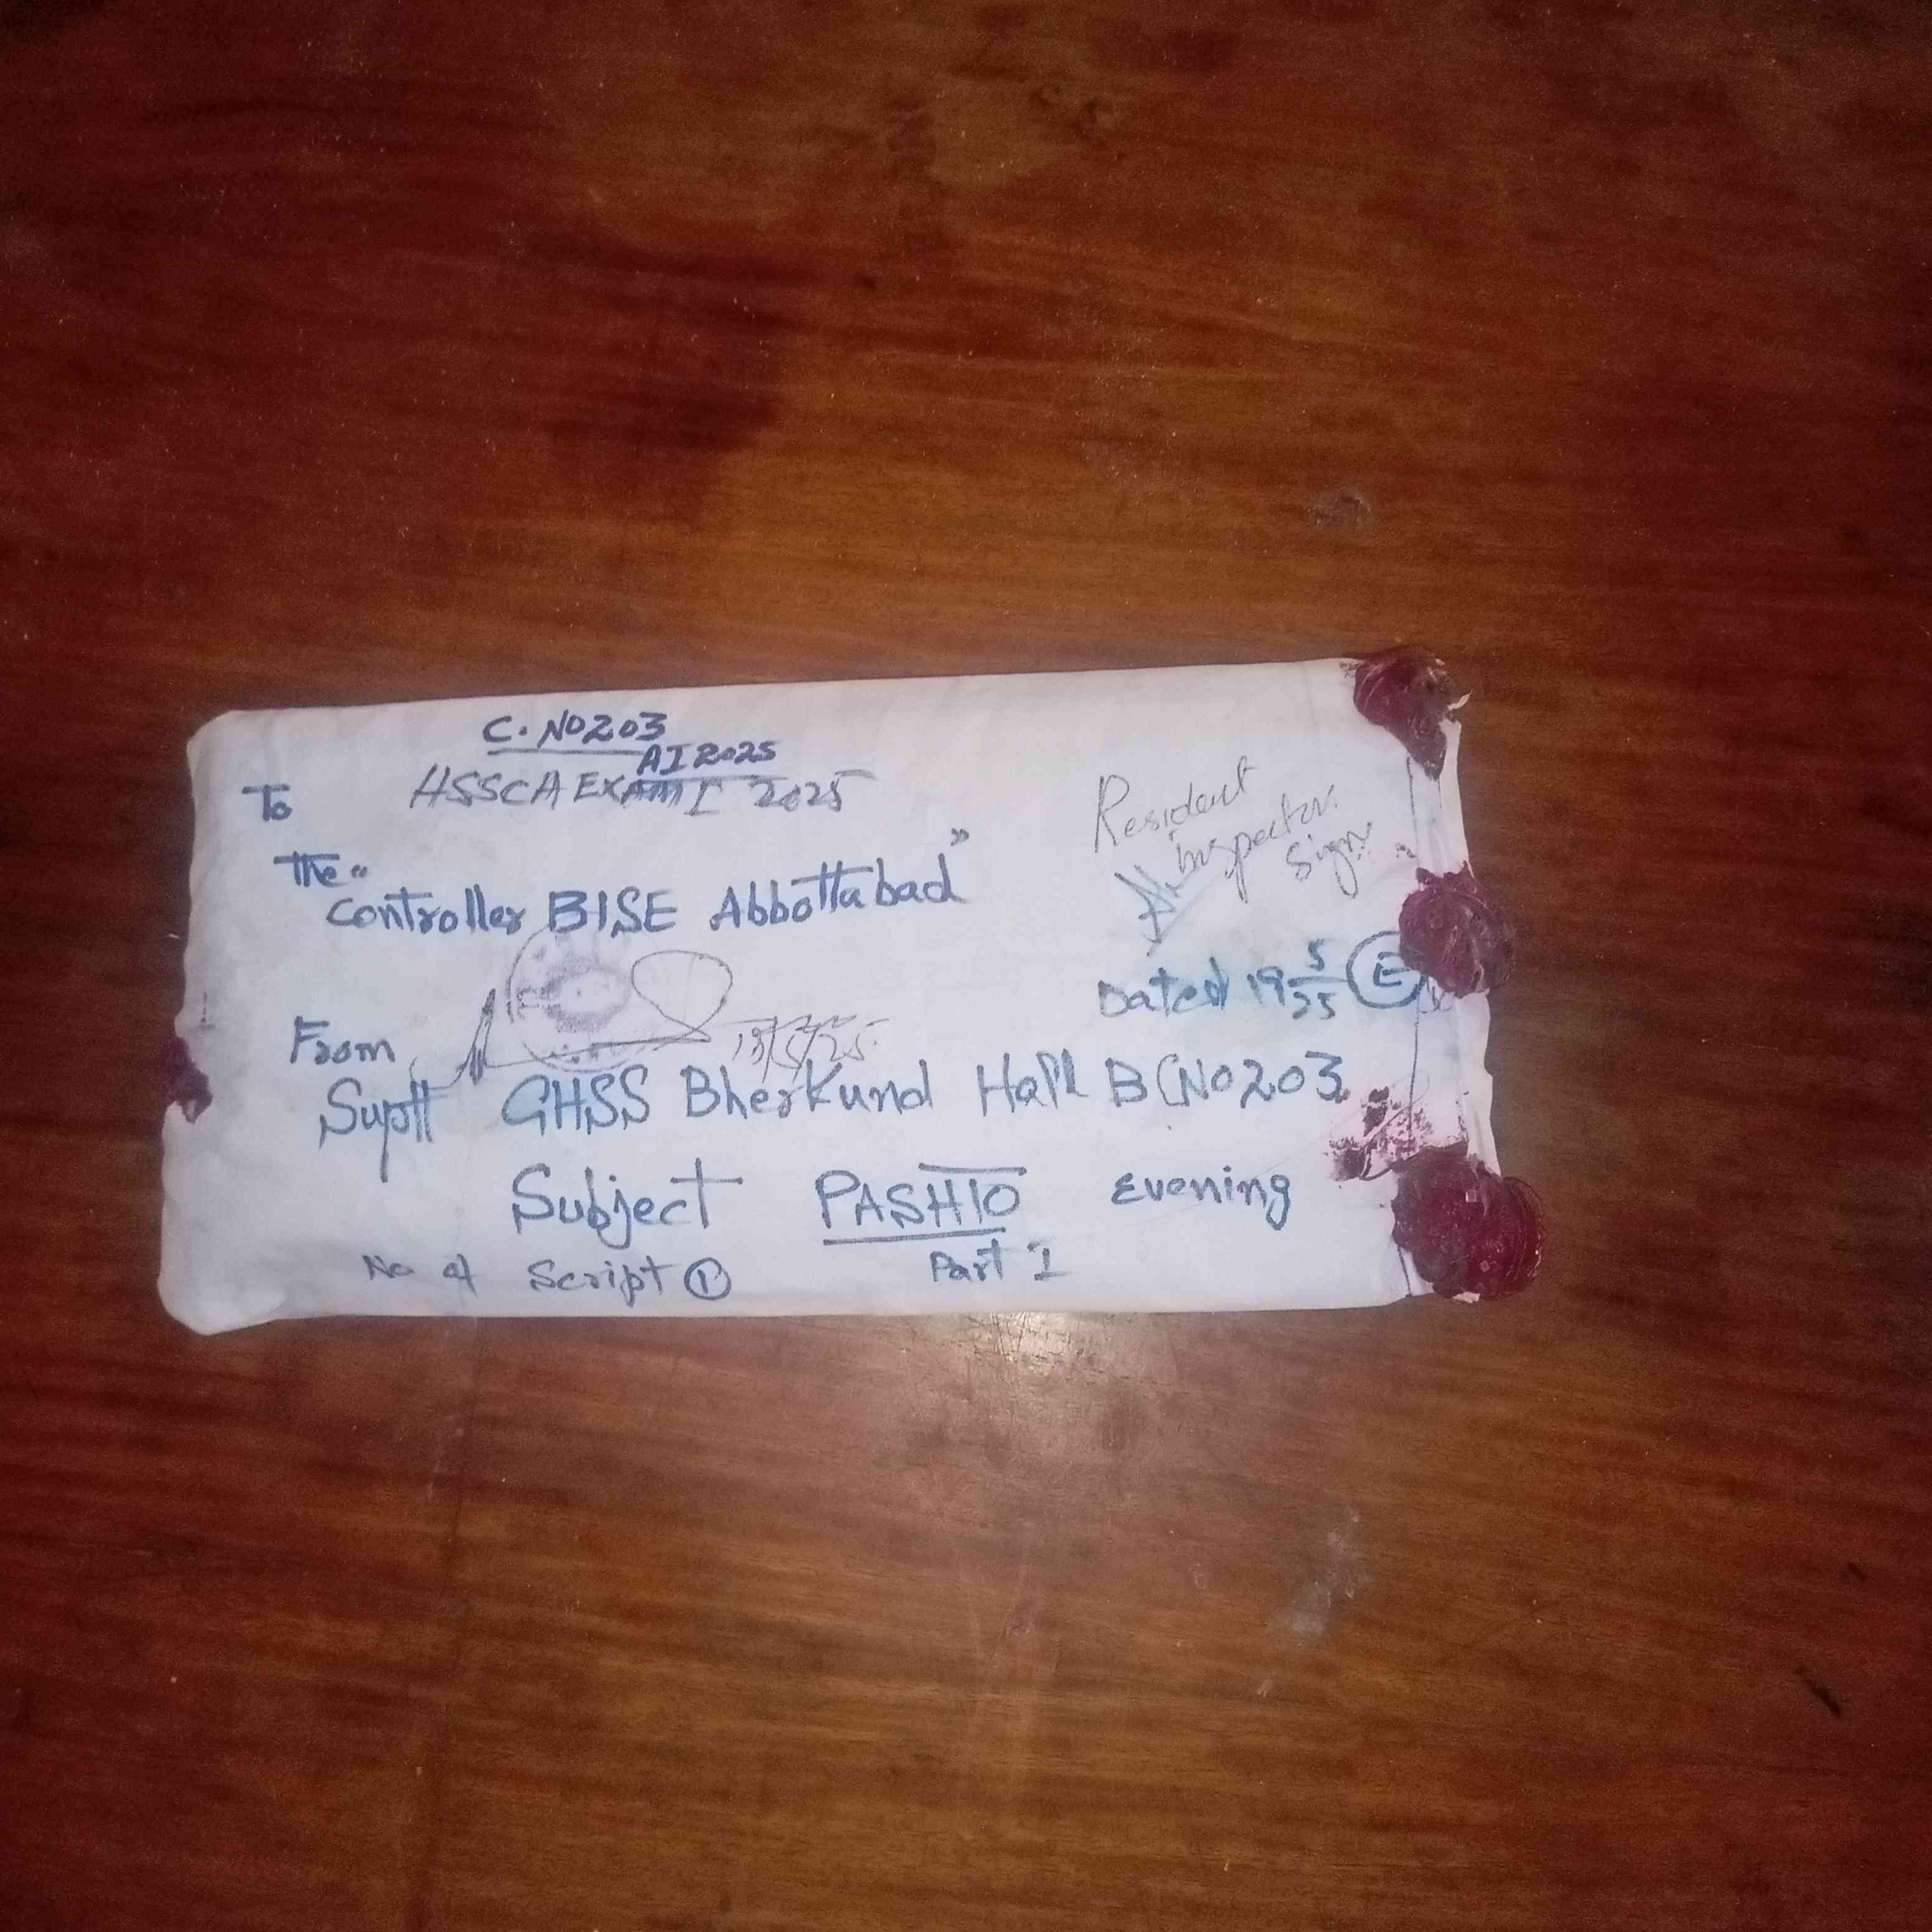 C. NO 203
AI 2025
HSSCA EXAM I 2025
To
The "
Controller BISE Abbottabad"
Resident
Inspector
Sign
Dated 19 5/25 E
From
Suptt GHSS Bherkund Hall B CNO 203
Subject PASHTO Evening
No of Script 1
Part I